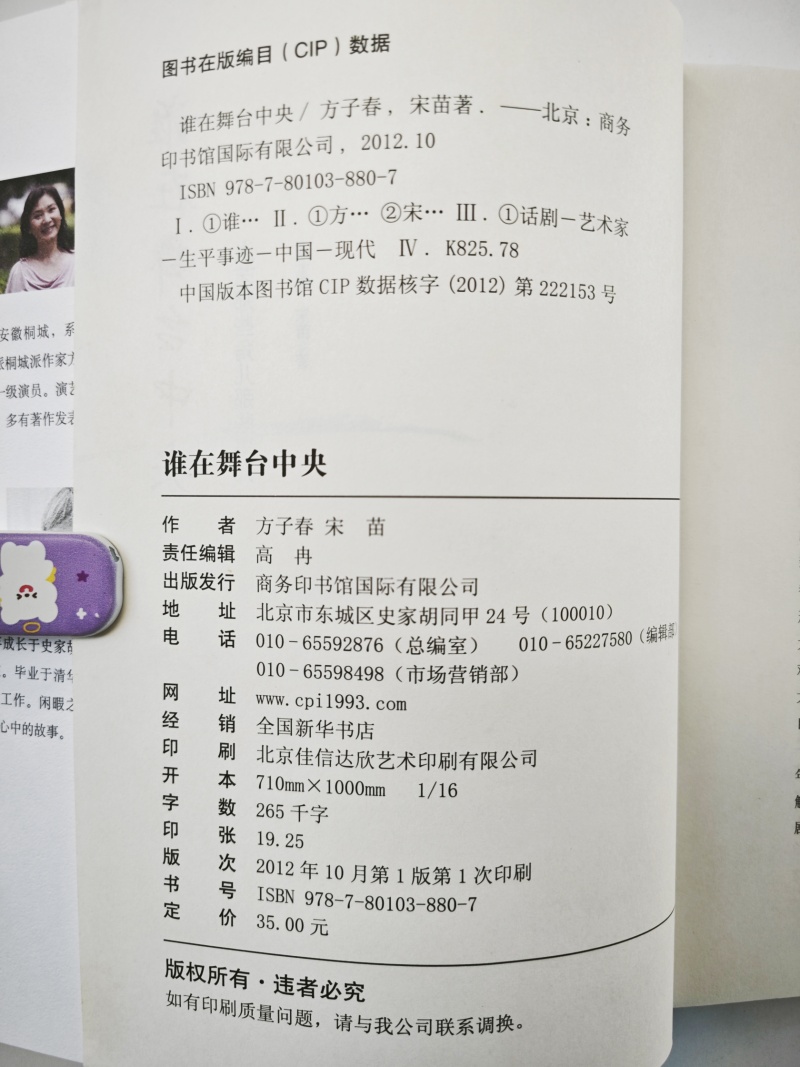 图书在版编目（CIP）数据
谁在舞台中央／方子春，宋苗著．——北京：商务
印书馆国际有限公司，2012.10
ISBN 978-7-80103-880-7
Ⅰ．①谁… Ⅱ．①方… ②宋… Ⅲ．①话剧－艺术家
－生平事迹－中国－现代 Ⅳ．K825.78
中国版本图书馆CIP数据核字（2012）第222153号
谁在舞台中央
作 者 方子春 宋 苗
责任编辑 高 冉
出版发行 商务印书馆国际有限公司
地 址 北京市东城区史家胡同甲24号（100010）
电 话 010－65592876（总编室） 010－65227580（编辑部
010－65598498（市场营销部）
网 址 www.cpi1993.com
经 销 全国新华书店
印 刷 北京佳信达欣艺术印刷有限公司
开 本 710mm×1000mm 1/16
字 数 265千字
印 张 19.25
版 次 2012年10月第1版第1次印刷
书 号 ISBN 978-7-80103-880-7
定 价 35.00元
版权所有·违者必究
如有印刷质量问题，请与我公司联系调换。
安徽桐城，系
桐城派作家方
一级演员。演艺
多有著作发表
成长于史家胡
。毕业于清华
工作。闲暇之
心中的故事。